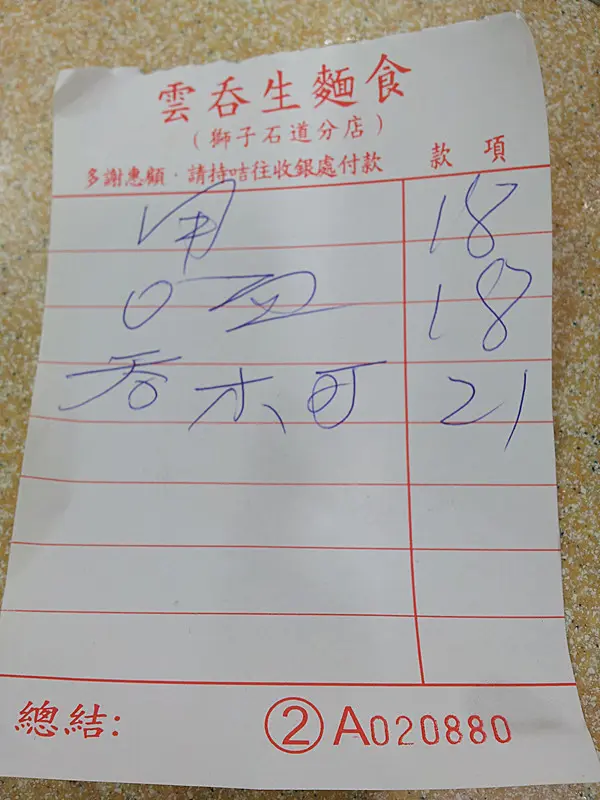 雲吞生麵食
(獅子石道分店)
多謝惠顧·請持咭往收銀處付款 款項
18
18
吞 21
總結: ② A020880